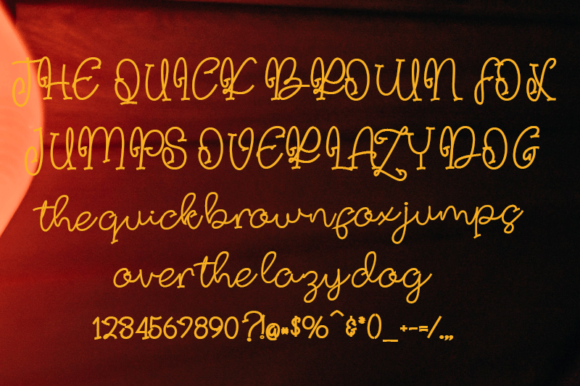 THE QUICK BROWN FOX
JUMPS OVER LAZY DOG
the quick brown fox jumps
over the lazy dog
1234567890?!@*$%^&*()_+-=/.,,